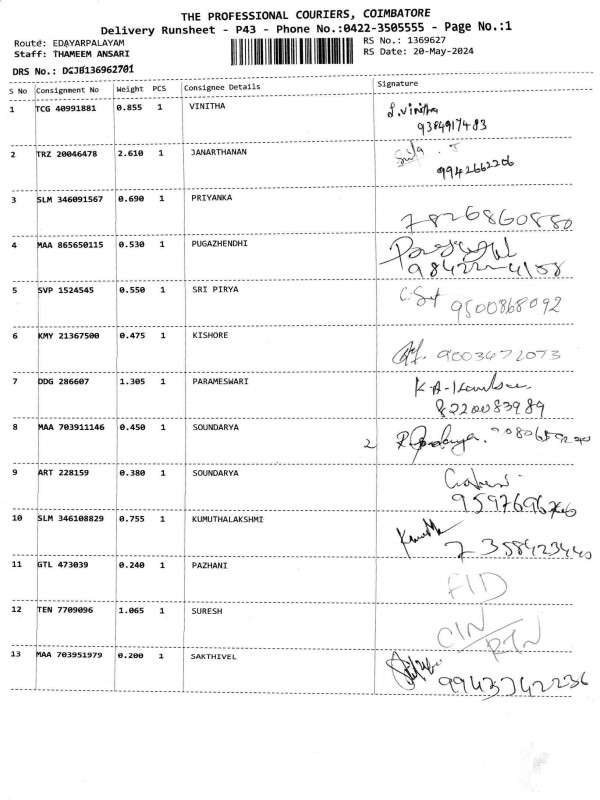 THE PROFESSIONAL COURIERS, COIMBATORE
Delivery Runsheet - P43 - Phone No.:0422-3505555 - Page No.:1
Route: EDAYARPALAYAM RS No.: 1369627
Staff: THAMEEM ANSARI RS Date: 20-May-2024
DRS No.: DGJB136962701
S No Consignment No Weight PCS Consignee Details Signature
1 TCG 40991881 0.855 1 VINITHA L.Vinitha
9384917483
2 TRZ 20046478 2.610 1 JANARTHANAN
9942662206
3 SLM 346091567 0.690 1 PRIYANKA
7826860880
4 MAA 865650115 0.530 1 PUGAZHENDHI
5 SVP 1524545 0.550 1 SRI PIRYA
9500868092
6 KMY 21367500 0.475 1 KISHORE
9003472073
7 DDG 286607 1.305 1 PARAMESWARI
8220083989
8 MAA 703911146 0.450 1 SOUNDARYA
2
9 ART 228159 0.380 1 SOUNDARYA
10 SLM 346108829 0.755 1 KUMUTHALAKSHMI
7358423440
11 GTL 473039 0.240 1 PAZHANI FID
12 TEN 7709096 1.065 1 SURESH CIN/RTN
13 MAA 703951979 0.200 1 SAKTHIVEL
9943742236